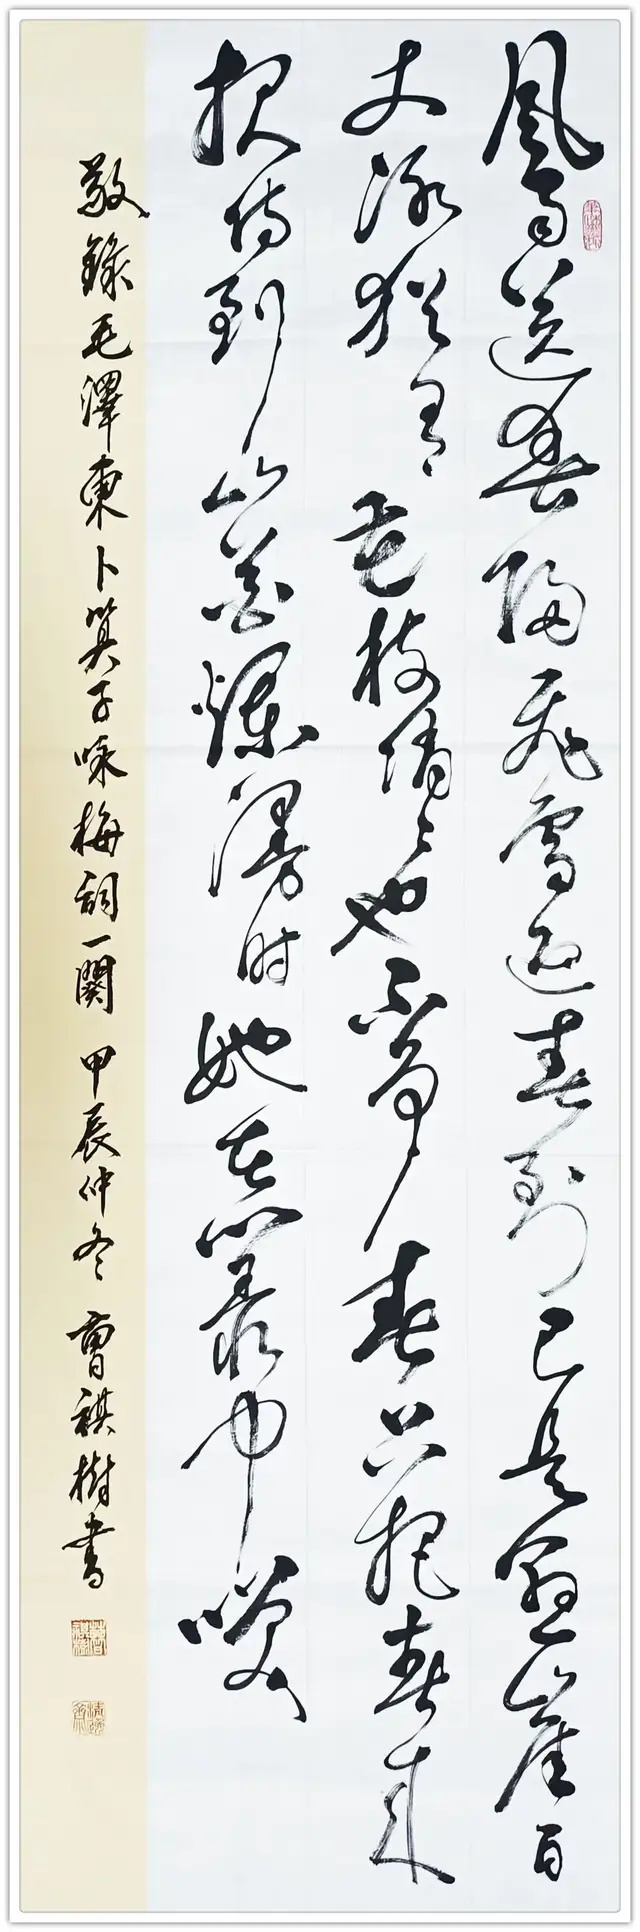 風雨送春歸飛雪迎春到已是懸崖百
丈冰猶有花枝俏〻也不爭春只把春來
报待到山花爛漫时她在叢中咲
敬錄毛澤東卜算子咏梅詞一闋 甲辰仲冬 曹祺樹書